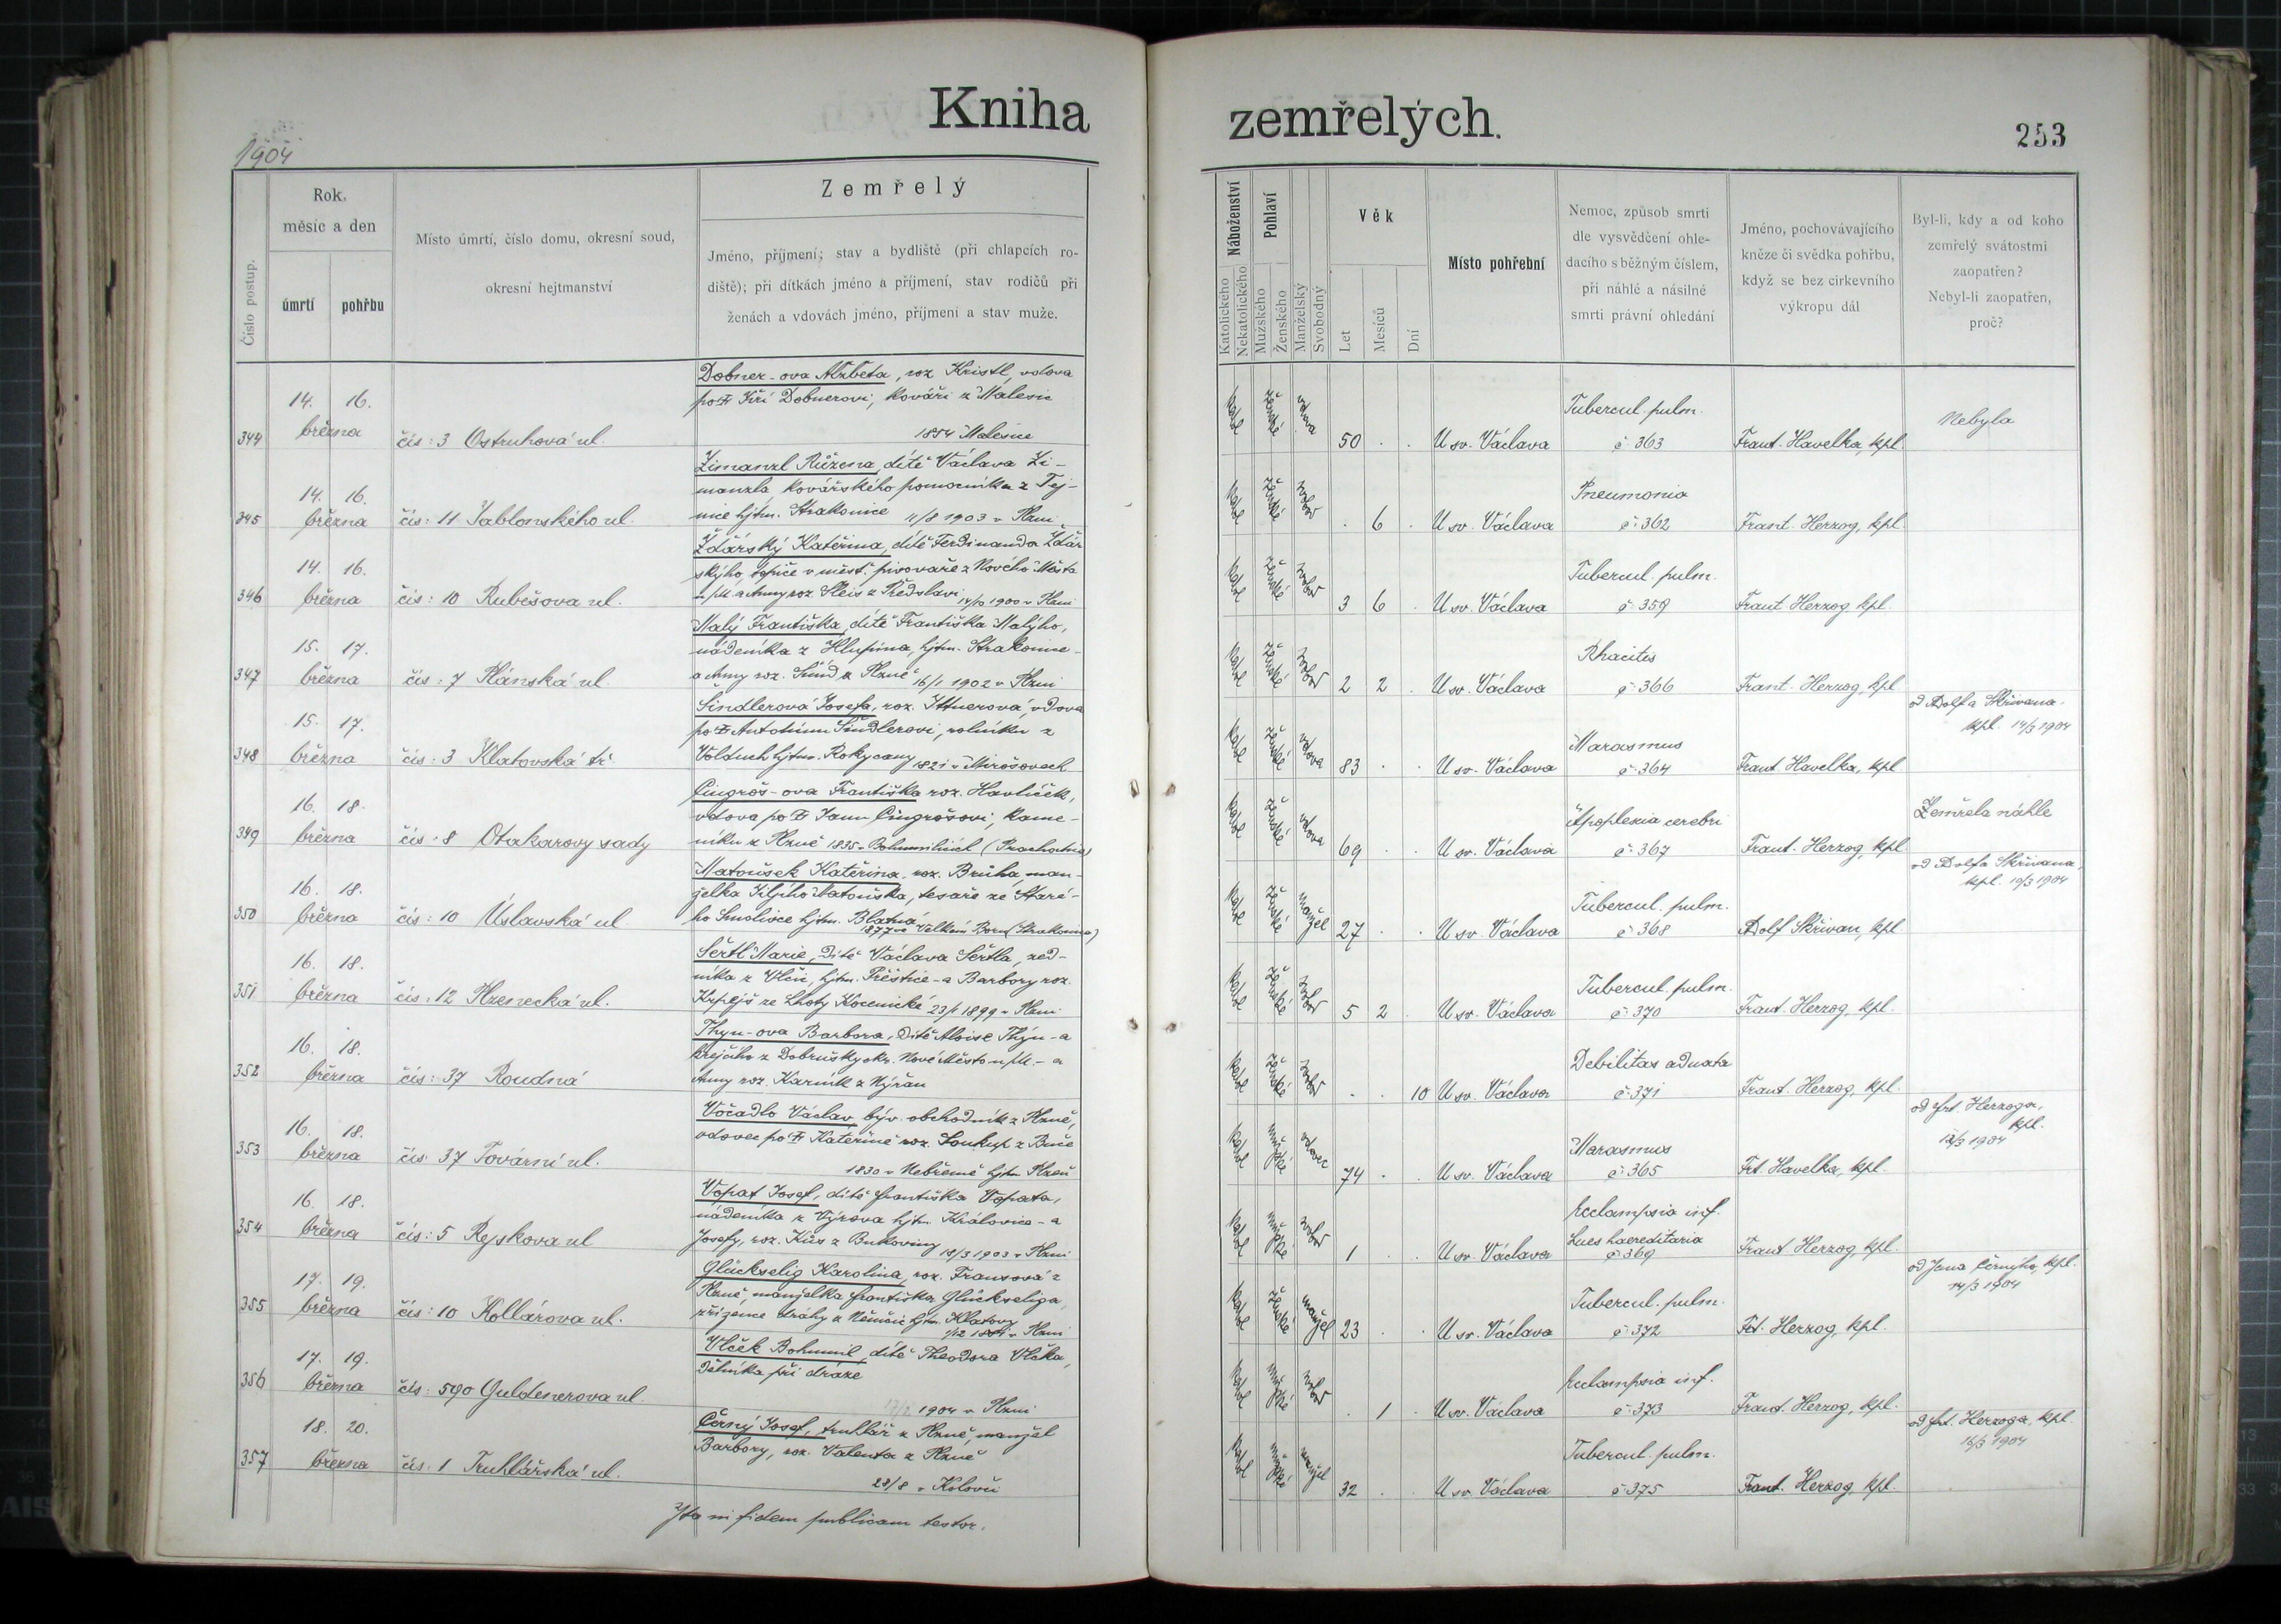 Kniha
zemřelých.
253
1904
Číslo postup.
Rok,
měsíc a den
úmrtí
pohřbu
Místo úmrtí, číslo domu, okresní soud,
okresní hejtmanství
Zemřelý
Jméno, příjmení; stav a bydliště (při chlapcích ro-
diště); při dítkách jméno a příjmení, stav rodičů při
ženách a vdovách jméno, příjmení a stav muže.
Náboženství
Katolického
Nekatolického
Pohlaví
Mužského
Ženského
Manželský
Svobodný
Věk
Let
Mesíců
Dní
Místo pohřební
Nemoc, způsob smrti
dle vysvědčení ohle-
dacího s běžným číslem,
při náhlé a násilné
smrti právní ohledání
Jméno, pochovávajícího
kněze či svědka pohřbu,
když se bez církevního
výkropu dál
Byl-li, kdy a od koho
zemřelý svátostmi
zaopatřen?
Nebyl-li zaopatřen,
proč?
344 14. 16. března čís: 3 Ostruhová ul.
Dobner-ova Alžběta, roz. Kristl, vdova
po Jiří Dobnerovi, kováři z Malesic
1854 Malesice
vdova 50 . . U sv. Václava Tubercul. pulm. č: 363 Frant. Havelka, kpl. Nebyla
345 14. 16. března čís: 11 Jablonského ul.
Zimanzl Růžena, dítě Václava Zi-
manzla, kovářského pomocníka z Tej-
nice hjtm. Strakonice 11/8 1903 v Plzni
. 6 . U sv. Václava Pneumonia č: 362 Frant. Herzog, kpl.
346 14. 16. března čís: 10 Rubešova ul.
Žďárský Kateřina, dítě Ferdinanda Žďár
ského, topiče v měšť. pivovaře z Nového Města
n/M. a Anny roz. Šleis z Předslavi 1900 v Plzni
3 6 . U sv. Václava Tubercul. pulm. č: 359 Frant. Herzog kpl.
347 15. 17. března čís: 7 Plánská ul.
Malý Františka, dítě Františka Malýho,
nádeníka z Hlupína, hjtm. Strakonice-
a Anny roz. z Plzně 16/1 1902 v Plzni
2 2 . U sv. Václava Rhacitis č: 366 Frant. Herzog, kpl
348 15. 17. března čís: 3 Klatovská tř.
Šindlerová Josefa, roz. Ittnerová, vdova
po Antonínu Šindlerovi, rolníku z
Volduch hjtm. Rokycany 1821 v Mirošovech
vdova 83 . . U sv. Václava Marasmus č: 364 Frant. Havelka, kpl od Adolfa Skřivana, kpl. 14/3 1904
349 16. 18. března čís: 8 Otakarovy sady
Cingroš-ova Františka roz. Havlíček,
vdova po Janu Cingrošovi, kame-
níku z Plzně 1835 (Prachatice)
vdova 69 . . U sv. Václava Apoplexia cerebri č: 367 Frant. Herzog, kpl. Zemřela náhle
350 16. 18. března čís: 10 Úslavská ul
Matoušek Kateřina, roz. Brůha, man-
želka Jiljího Matouška, tesaře ze Staré-
ho Smolivce hjtm. Blatná
1877 ve Velkém Boru (Strakonice)
manžel 27 . . U sv. Václava Tubercul. pulm. č: 368 Adolf Skřivan, kpl od Adolfa Skřivana, kpl. 10/3 1904
351 16. 18. března čís: 12 Plzenecká ul.
Šértl Marie, dítě Václava Šértla, zed-
níka z Vlčic, hjtm. Přeštice - a Barbory roz.
Krpejš ze Lhoty Kocenické 23/1 1899 v Plzni
5 2 . U sv. Václava Tubercul. pulm. č: 370 Frant. Herzog, kpl.
352 16. 18. března čís: 37 Roudná
Thyn-ova Barbora, dítě Aloise Thýn-a
krejčího z Dobrušky okr. Nové Město n/M. - a
Anny roz. Karník z Nýřan
. . 10 U sv. Václava Debilitas adnata č: 371 Frant. Herzog, kpl.
353 16. 18. března čís: 37 Tovární ul.
Vočadlo Václav, býv. obchodník z Plzně,
vdovec po Kateřině roz. Soukup z Buče
1830 v Nebřemě hjtm Plzeň
vdovec 74 . . U sv. Václava Marasmus č: 365 Frt Havelka, kpl. od Frt. Herzoga, kpl. 12/3 1904
354 16. 18. března čís: 5 Rejskova ul
Vopat Josef, dítě Františka Vopata,
nádeníka z Výrova hjtm. Kralovice - a
Josefy, roz. Kůs z Bukoviny 18/3 1903 v Plzni
1 . . U sv. Václava Ecclampsia inf. Lues haereditaria č: 369 Frant Herzog kpl.
355 17. 19. března čís: 10 Kollárova ul.
Glückselig Karolina, roz. Fransová z
Plzně, manželka Františka Glückseliga,
zřízence dráhy z Němčic hjtm. Klatovy
v Plzni
manžel 23 . . U sv. Václava Tubercul. pulm. č: 372 Frt. Herzog, kpl. od Jana Černýho, kpl. 14/3 1904
356 17. 19. března čís: 590 Guldenerova ul.
Vlček Bohumil, dítě Theodora Vlčka,
dělníka při dráze
1904 v Plzni
. 1 . U sv. Václava Ecclampsia inf. č: 373 Frant. Herzog, kpl.
357 18. 20. března čís: 1 Truhlářská ul.
Černý Josef, truhlář z Plzně, manžel
Barbory, roz. Valenta z Plzně
28/8 v Kolovči
manžel 32 . . U sv. Václava Tubercul. pulm. č: 375 Frant. Herzog, kpl. od Frt. Herzoga, kpl. 16/3 1904
Ita in fidem publicam testor.